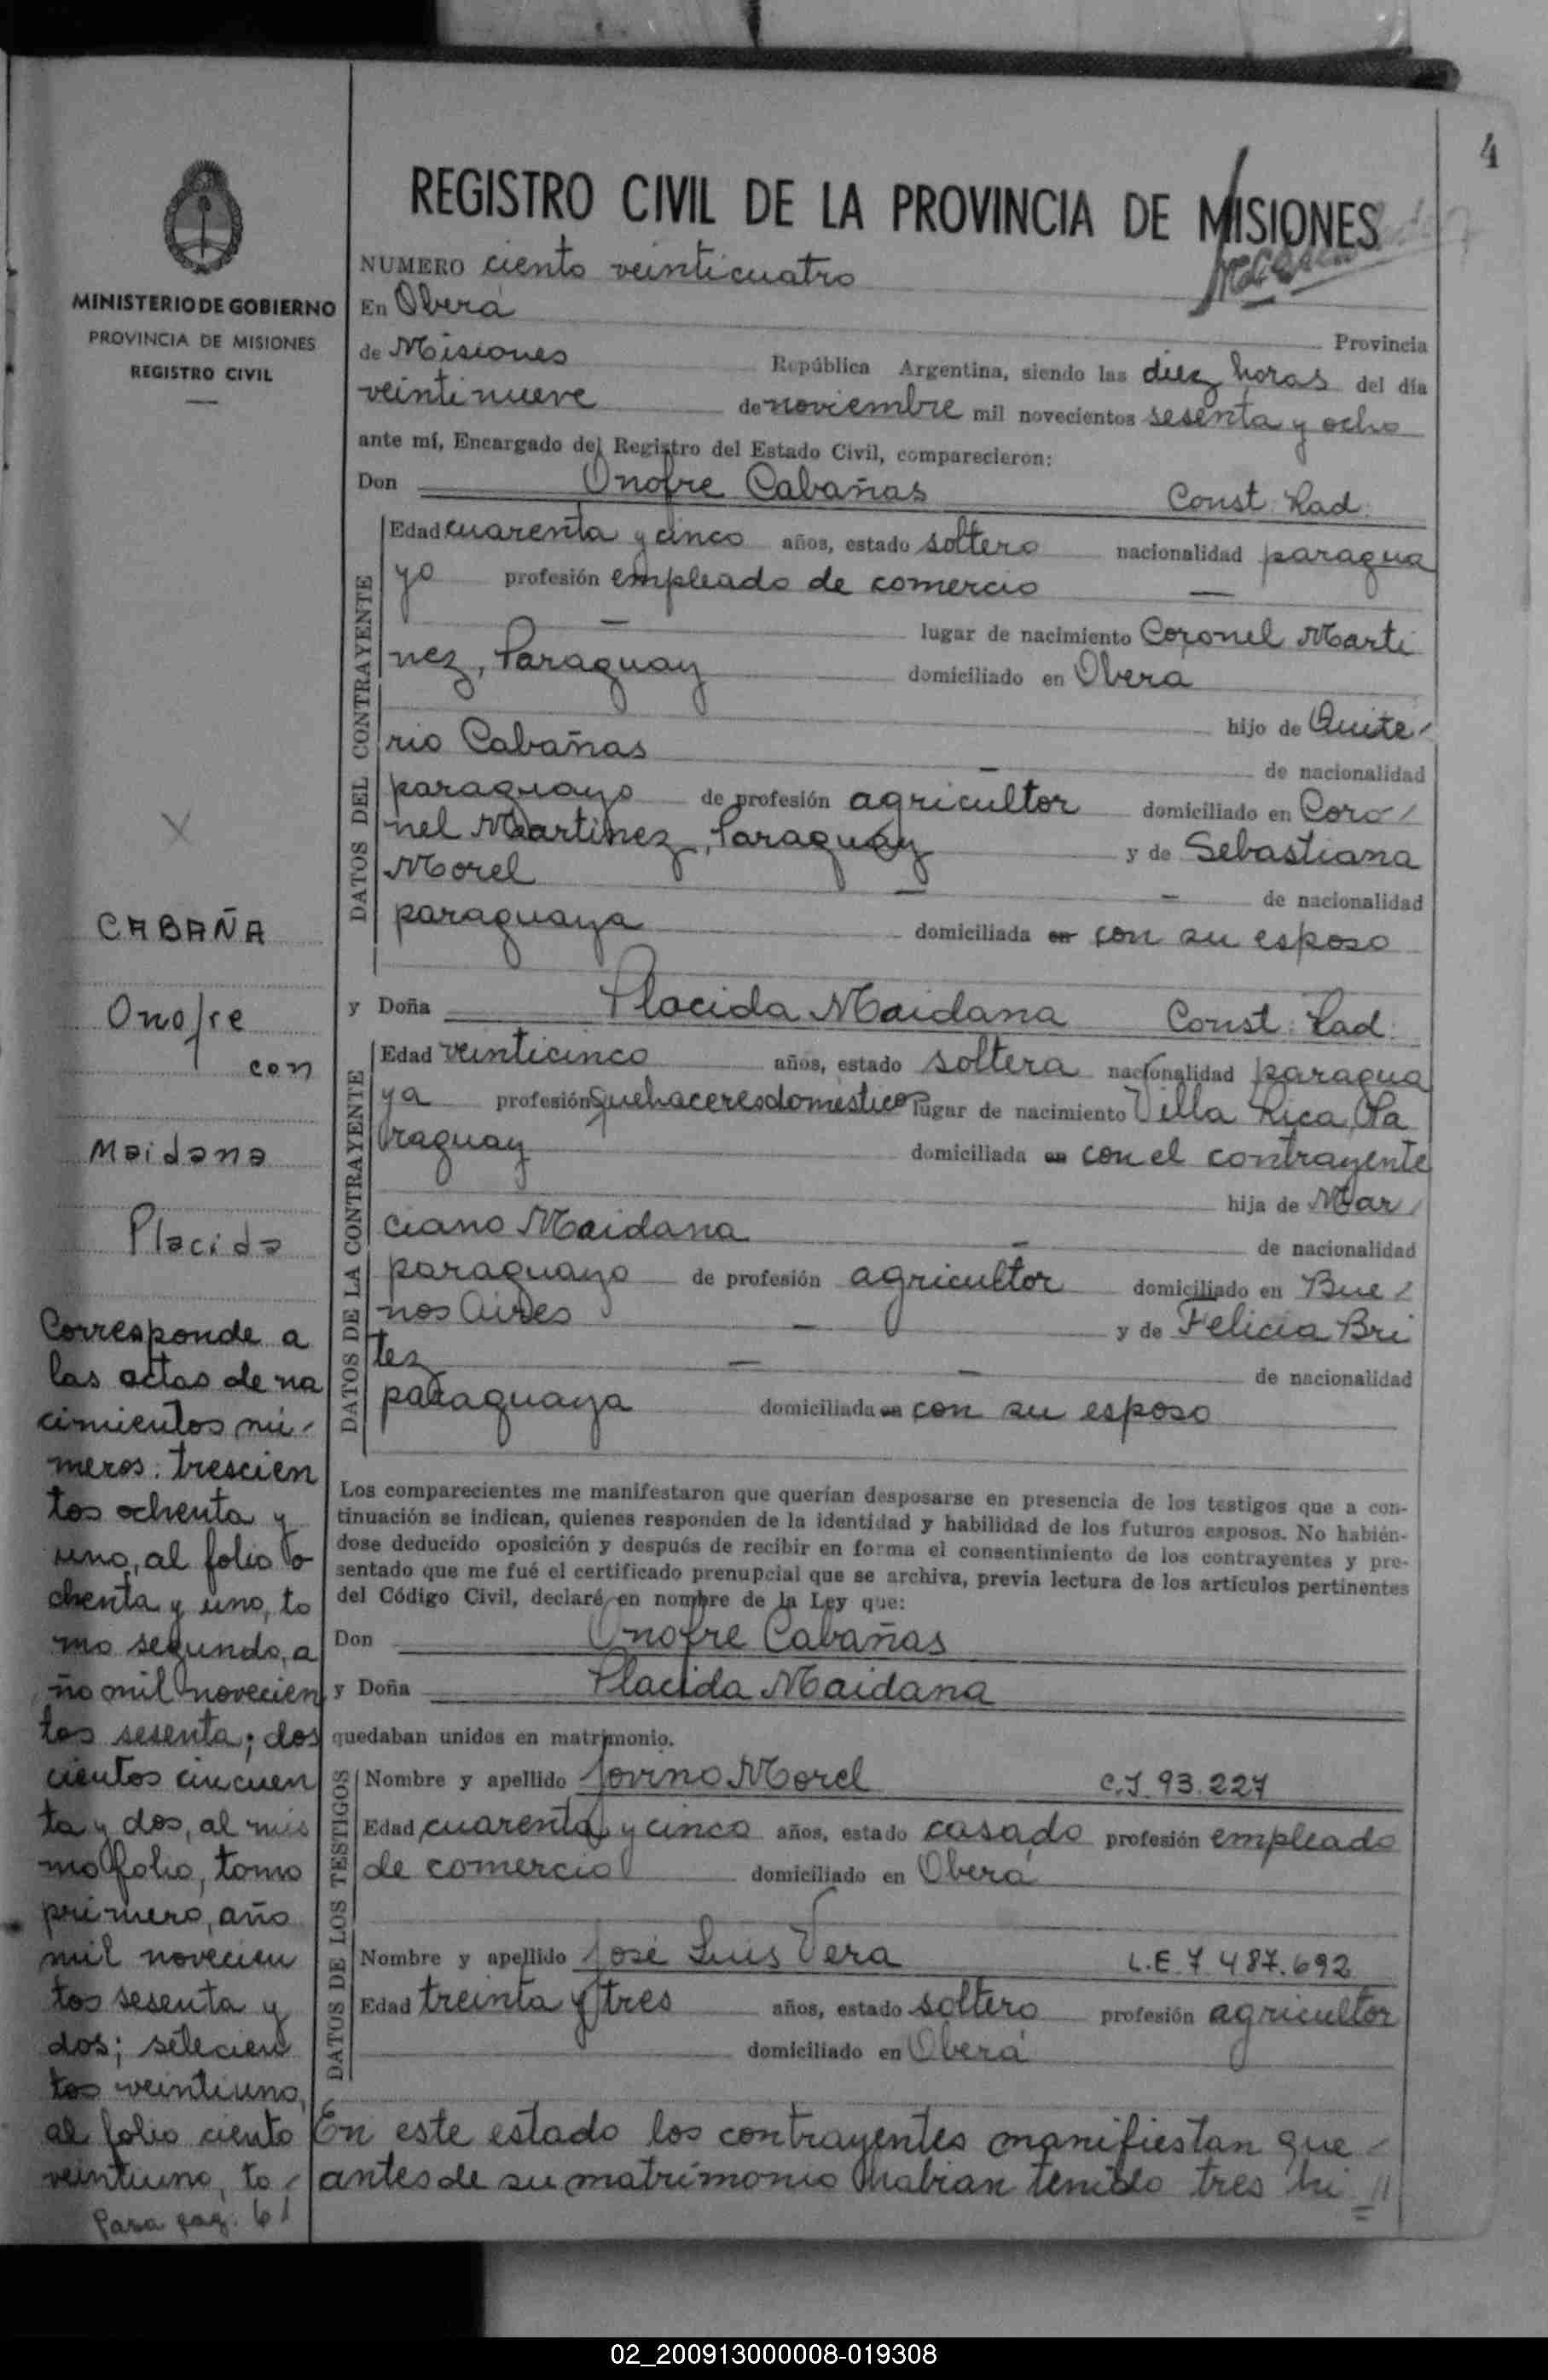 4
REGISTRO CIVIL DE LA PROVINCIA DE MISIONES
MINISTERIO DE GOBIERNO
PROVINCIA DE MISIONES
REGISTRO CIVIL
NUMERO ciento veinticuatro
En Oberá Provincia
de Misiones República Argentina, siendo las diez horas del día
veintinueve de noviembre mil novecientos sesenta y ocho
ante mí, Encargado del Registro del Estado Civil, comparecieron:
Don Onofre Cabañas Const. Rad.
DATOS DEL CONTRAYENTE
Edad cuarenta y cinco años, estado soltero nacionalidad paragua
yo profesión empleado de comercio —
— lugar de nacimiento Coronel Marti
nez, Paraguay domiciliado en Oberá
hijo de Quite/
rio Cabañas — de nacionalidad
paraguayo de profesión agricultor domiciliado en Coro/
nel Martinez, Paraguay y de Sebastiana
Morel — — de nacionalidad
paraguaya domiciliada en con su esposo
y Doña Placida Maidana Const. Rad.
DATOS DE LA CONTRAYENTE
Edad veinticinco años, estado soltera nacionalidad paragua
ya profesión quehaceres domestico lugar de nacimiento Villa Rica, Pa
raguay domiciliada en con el contrayente
hija de Mar/
ciano Maidana — de nacionalidad
paraguayo de profesión agricultor domiciliado en Bue/
nos Aires — y de Felicia Bri
tez — — de nacionalidad
paraguaya domiciliada en con su esposo
Los comparecientes me manifestaron que querían desposarse en presencia de los testigos que a con-
tinuación se indican, quienes responden de la identidad y habilidad de los futuros esposos. No habién-
dose deducido oposición y después de recibir en forma el consentimiento de los contrayentes y pre-
sentado que me fué el certificado prenupcial que se archiva, previa lectura de los artículos pertinentes
del Código Civil, declaré en nombre de la Ley que:
Don Onofre Cabañas
y Doña Placida Maidana
quedaban unidos en matrimonio.
DATOS DE LOS TESTIGOS
Nombre y apellido Jovino Morel C.I. 93.227
Edad cuarenta y cinco años, estado casado profesión empleado
de comercio domiciliado en Oberá
Nombre y apellido José Luis Vera L.E. 7.487.692
Edad treinta y tres años, estado soltero profesión agricultor
domiciliado en Oberá
En este estado los contrayentes manifiestan que/
antes de su matrimonio habian tenido tres hi//
CABAÑA
Onofre
con
Maidana
Placida
Corresponde a
las actas de na
cimientos nú-
meros: trescien
tos ochenta y
uno, al folio o
chenta y uno, to
mo segundo, a
ño mil novecien
tos sesenta; dos
cientos cincuen
ta y dos, al mis
mo folio, tomo
primero, año
mil novecien
tos sesenta y
dos; setecien
tos veintiuno,
al folio ciento
veintiuno, to/
Pasa pag. 61
02_200913000008-019308